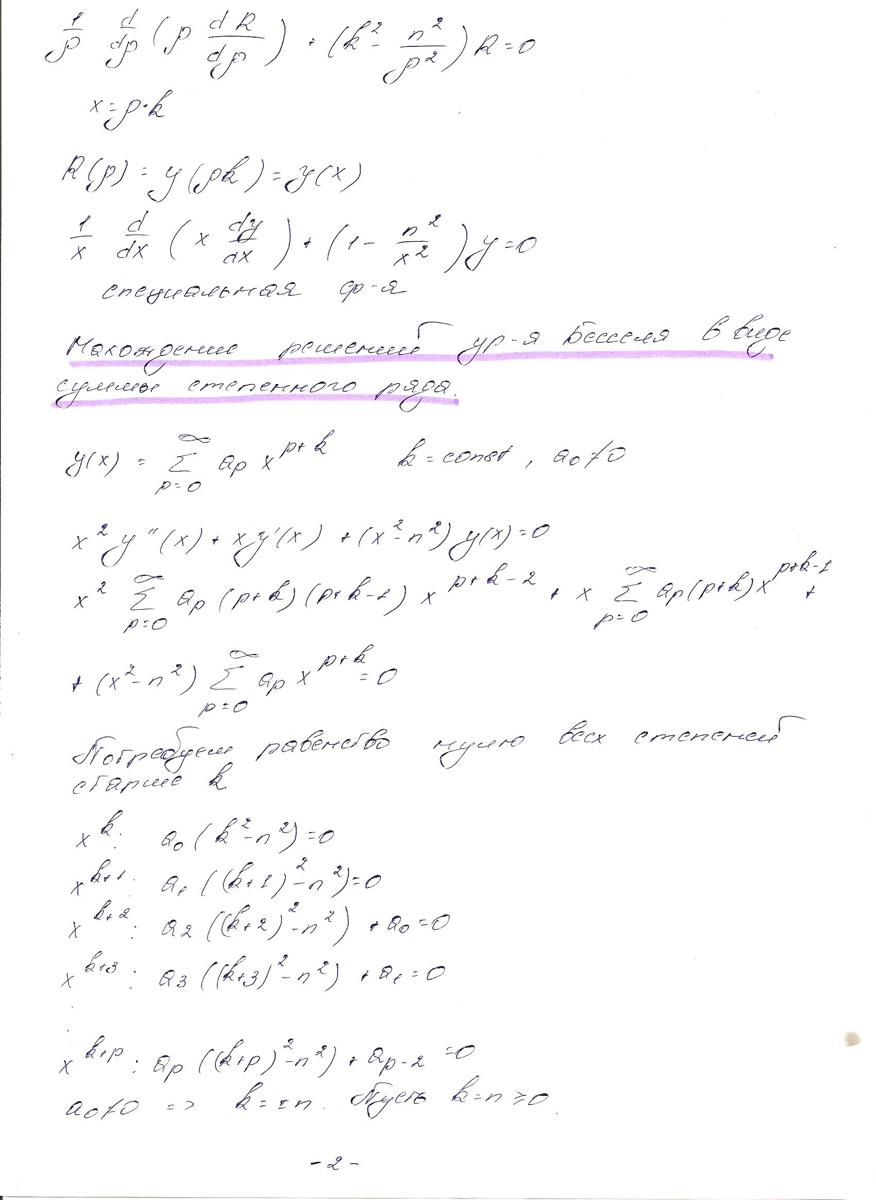 1/ρ d/dρ (ρ dR/dρ) + (k² - n²/ρ²) R = 0
x = ρ·k
R(ρ) = y(ρk) = y(x)
1/x d/dx (x dy/dx) + (1 - n²/x²) y = 0
специальная ф-я
Нахождение решений ур-я Бесселя в виде
суммы степенного ряда.
y(x) = ∑_{p=0}^{∞} a_p x^{p+k} k = const, a₀ ≠ 0
x² y''(x) + xy'(x) + (x² - n²) y(x) = 0
x² ∑_{p=0}^{∞} a_p (p+k)(p+k-1) x^{p+k-2} + x ∑_{p=0}^{∞} a_p (p+k) x^{p+k-1} +
+ (x² - n²) ∑_{p=0}^{∞} a_p x^{p+k} = 0
Потребуем равенство нулю всех степеней
старше k
x^k: a₀ (k² - n²) = 0
x^{k+1}: a₁ ((k+1)² - n²) = 0
x^{k+2}: a₂ ((k+2)² - n²) + a₀ = 0
x^{k+3}: a₃ ((k+3)² - n²) + a₁ = 0
.
.
x^{k+p}: a_p ((k+p)² - n²) + a_{p-2} = 0
a₀ ≠ 0 => k = ±n. Пусть k = n ≥ 0.
- 2 -